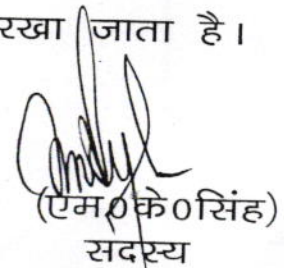 रखा जाता है।
(एम०के०सिंह)
सदस्य